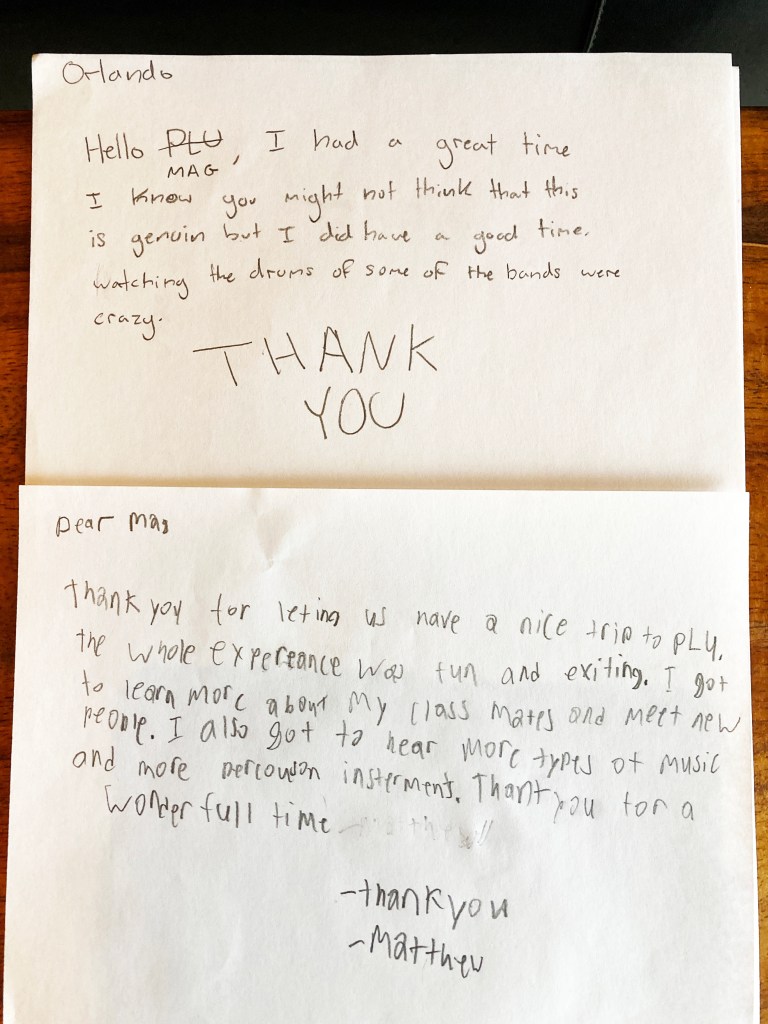 Orlando
Hello PLU, I had a great time
MAG
I know you might not think that this
is genuin but I did have a good time.
watching the drums of some of the bands were
crazy.
THANK
YOU
Dear Mag
Thank you for leting us have a nice trip to PLU.
the whole expereance was fun and exiting. I got
to learn more about my class mates and meet new
people. I also got to hear more types of music
and more percouson insterment. Thank you for a
wonder full time
-thank you
-Matthew